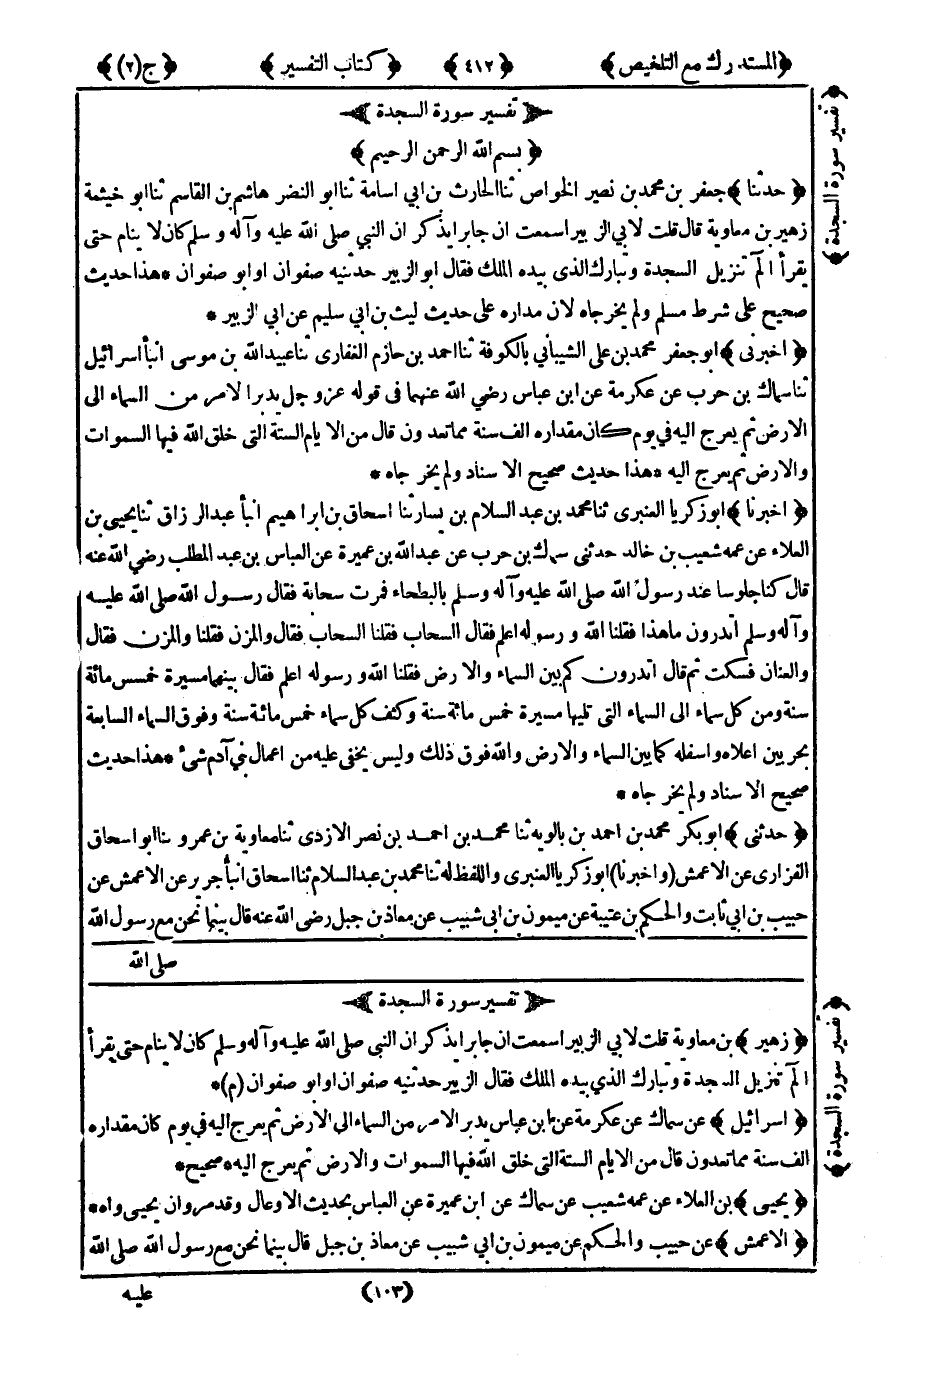 ﴿المستدرك مع التلخيص﴾ ﴿٤١٢﴾ ﴿كتاب التفسير﴾ ﴿ج(٢)﴾
﴿تفسير سورة السجدة﴾
﴿بسم الله الرحمن الرحيم﴾
﴿حدثنا﴾ جعفر بن محمد بن نصير الخواص ثنا الحارث بن ابي اسامة ثنا ابو النضر هاشم بن القاسم ثنا ابو خيثمة
زهير بن معاوية قال قلت لابي الزبير اسمعت ان جابر ايذكر ان النبي صلى الله عليه وآله وسلم كان لا ينام حتى
يقرأ الٓم تنزيل السجدة وتبارك الذى بيده الملك فقال ابو الزبير حدثنيه صفوان او ابو صفوان * هذا حديث
صحيح على شرط مسلم ولم يخرجاه لان مداره على حديث ليث بن ابي سليم عن ابي الزبير *
﴿اخبرنى﴾ ابو جعفر محمد بن على الشيباني بالكوفة ثنا احمد بن حازم الغفارى ثنا عبيد الله بن موسى انبأ اسرائيل
ثنا سماك بن حرب عن عكرمة عن ابن عباس رضي الله عنهما فى قوله عز وجل يدبر الامر من السماء الى
الارض ثم يعرج اليه في يوم كان مقداره الف سنة مما تعدون قال من الايام الستة التى خلق الله فيها السموات
والارض ثم يعرج اليه * هذا حديث صحيح الاسناد ولم يخرجاه *
﴿اخبرنا﴾ ابو زكريا العنبرى ثنا محمد بن عبد السلام بن يسار ثنا اسحاق بن ابراهيم انبأ عبد الرزاق ثنا يحيى بن
العلاء عن عمه شعيب بن خالد حدثنى سماك بن حرب عن عبد الله بن عميرة عن العباس بن عبد المطلب رضي الله عنه
قال كنا جلوسا عند رسول الله صلى الله عليه وآله وسلم بالبطحاء فمرت سحابة فقال رسول الله صلى الله عليه
وآله وسلم اتدرون ما هذا فقلنا الله ورسوله اعلم فقال السحاب فقلنا السحاب فقال والمزن فقلنا والمزن فقال
والعنان فسكت ثم قال اتدرون كم بين السماء والارض فقلنا الله ورسوله اعلم فقال بينهما مسيرة خمس مائة
سنة ومن كل سماء الى السماء التى تليها مسيرة خمس مائة سنة وكثف كل سماء خمس مائة سنة وفوق السماء السابعة
بحر بين اعلاه واسفله كما بين السماء والارض والله فوق ذلك وليس يخفى عليه من اعمال بني آدم شئ * هذا حديث
صحيح الاسناد ولم يخرجاه *
﴿حدثنى﴾ ابو بكر محمد بن احمد بن بالويه ثنا محمد بن احمد بن نصر الازدى ثنا معاوية بن عمرو ثنا ابو اسحاق
الفزارى عن الاعمش (واخبرنا) ابو زكريا العنبرى واللفظ له ثنا محمد بن عبد السلام ثنا اسحاق انبأ جرير عن الاعمش عن
حبيب بن ابي ثابت والحكم بن عتيبة عن ميمون بن ابى شبيب عن معاذ بن جبل رضى الله عنه قال بينما نحن مع رسول الله
صلى الله
﴿تفسير سورة السجدة﴾
﴿زهير﴾ بن معاوية قلت لابي الزبير اسمعت ان جابر ايذكر ان النبي صلى الله عليه وآله وسلم كان لا ينام حتى يقرأ
الٓم تنزيل السجدة وتبارك الذي بيده الملك فقال الزبير حدثنيه صفوان او ابو صفوان (م) *
﴿اسرائيل﴾ عن سماك عن عكرمة عن ابن عباس يدبر الامر من السماء الى الارض ثم يعرج اليه في يوم كان مقداره
الف سنة مما تعدون قال من الايام الستة التى خلق الله فيها السموات والارض ثم يعرج اليه * صحيح *
﴿يحيى﴾ بن العلاء عن عمه شعيب عن سماك عن ابن عميرة عن العباس بحديث الاوعال وقد مر وان يحيى واه *
﴿الاعمش﴾ عن حبيب والحكم عن ميمون بن ابي شبيب عن معاذ بن جبل قال بينما نحن مع رسول الله صلى الله
(١٠٣) عليه
﴿تفسير سورة السجدة﴾
﴿تفسير سورة السجدة﴾